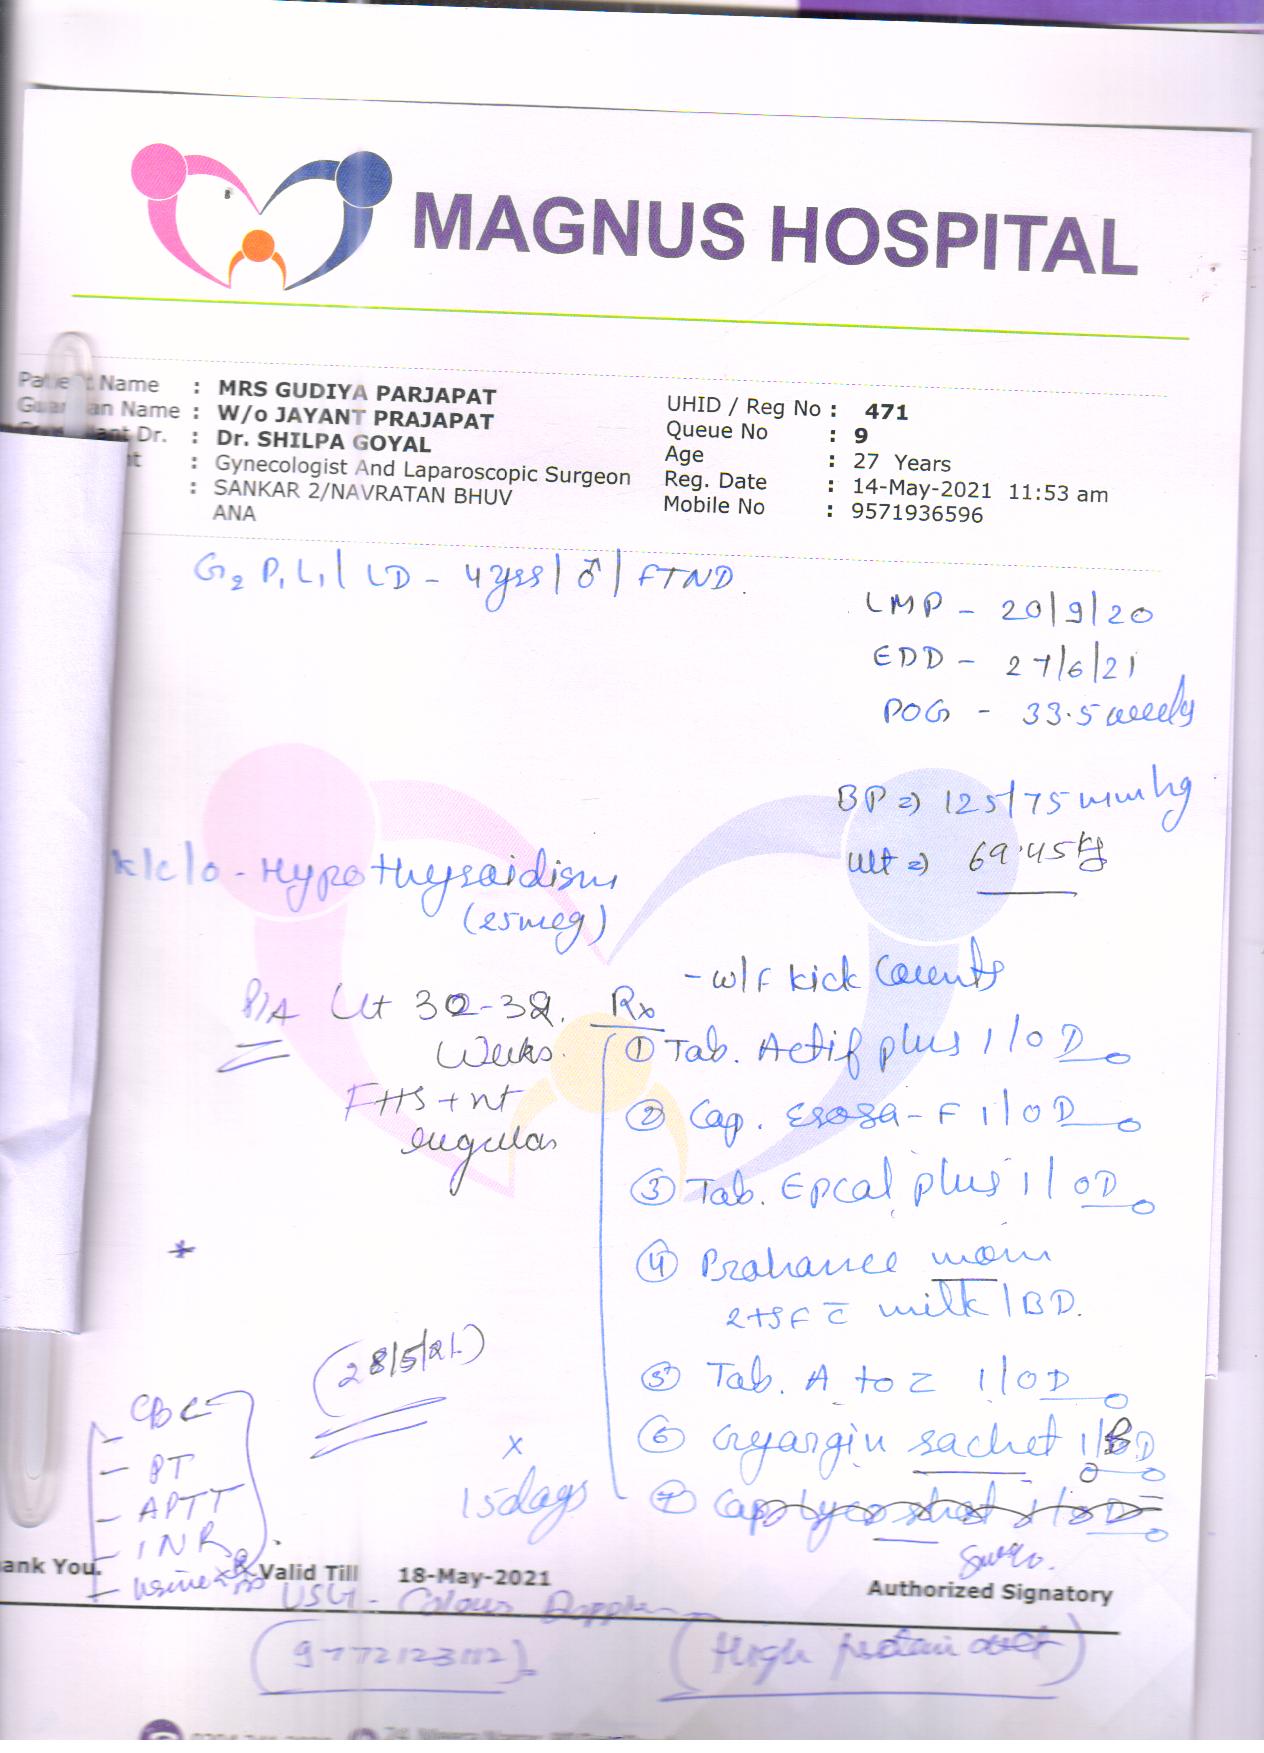 MAGNUS HOSPITAL
Patient Name : MRS GUDIYA PARJAPAT
Guardian Name : W/o JAYANT PRAJAPAT
Dr. : Dr. SHILPA GOYAL
: Gynecologist And Laparoscopic Surgeon
: SANKAR 2/NAVRATAN BHUV
ANA
UHID / Reg No : 471
Queue No : 9
Age : 27 Years
Reg. Date : 14-May-2021 11:53 am
Mobile No : 9571936596
G2 P1 L1 | LD - 4 yrs | ♂ | FTND.
LMP - 20/9/20
EDD - 27/6/21
POG - 33.5 weeks
BP => 125/75 mmhg
Wt => 69.45 kg
K/c/o - Hypothyroidism
(25mcg)
P/A Ut 30-32.
Weeks.
FHS + nt
regular
- w/f kick Counts
Rx
① Tab. Actif plus 1/OD
② Cap. Esosa-F 1/OD
③ Tab. Epcal plus 1/OD
④ Prohance mom
2tsf c̄ milk / BD.
⑤ Tab. A to Z 1/OD
⑥ Gyargin sachet 1/BD
⑦ Cap Lyco
x
15days
(28/5/21)
- CBC
- PT
- APTT
- INR
- Urine
ank You.
Valid Till 18-May-2021
Authorized Signatory
USG - Colour Doppler
(High protein diet)